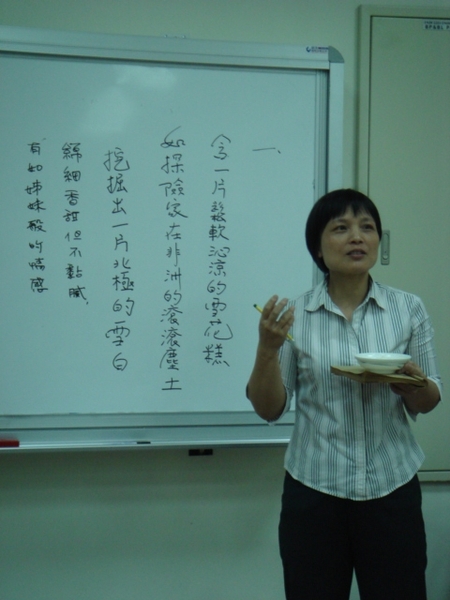 一、
令一片鬆軟沁涼的雪花糕
如探險家在非洲的滾滾塵土
挖掘出一片北極的雪白
綿細香甜但不黏膩，
有如姊妹般的情感